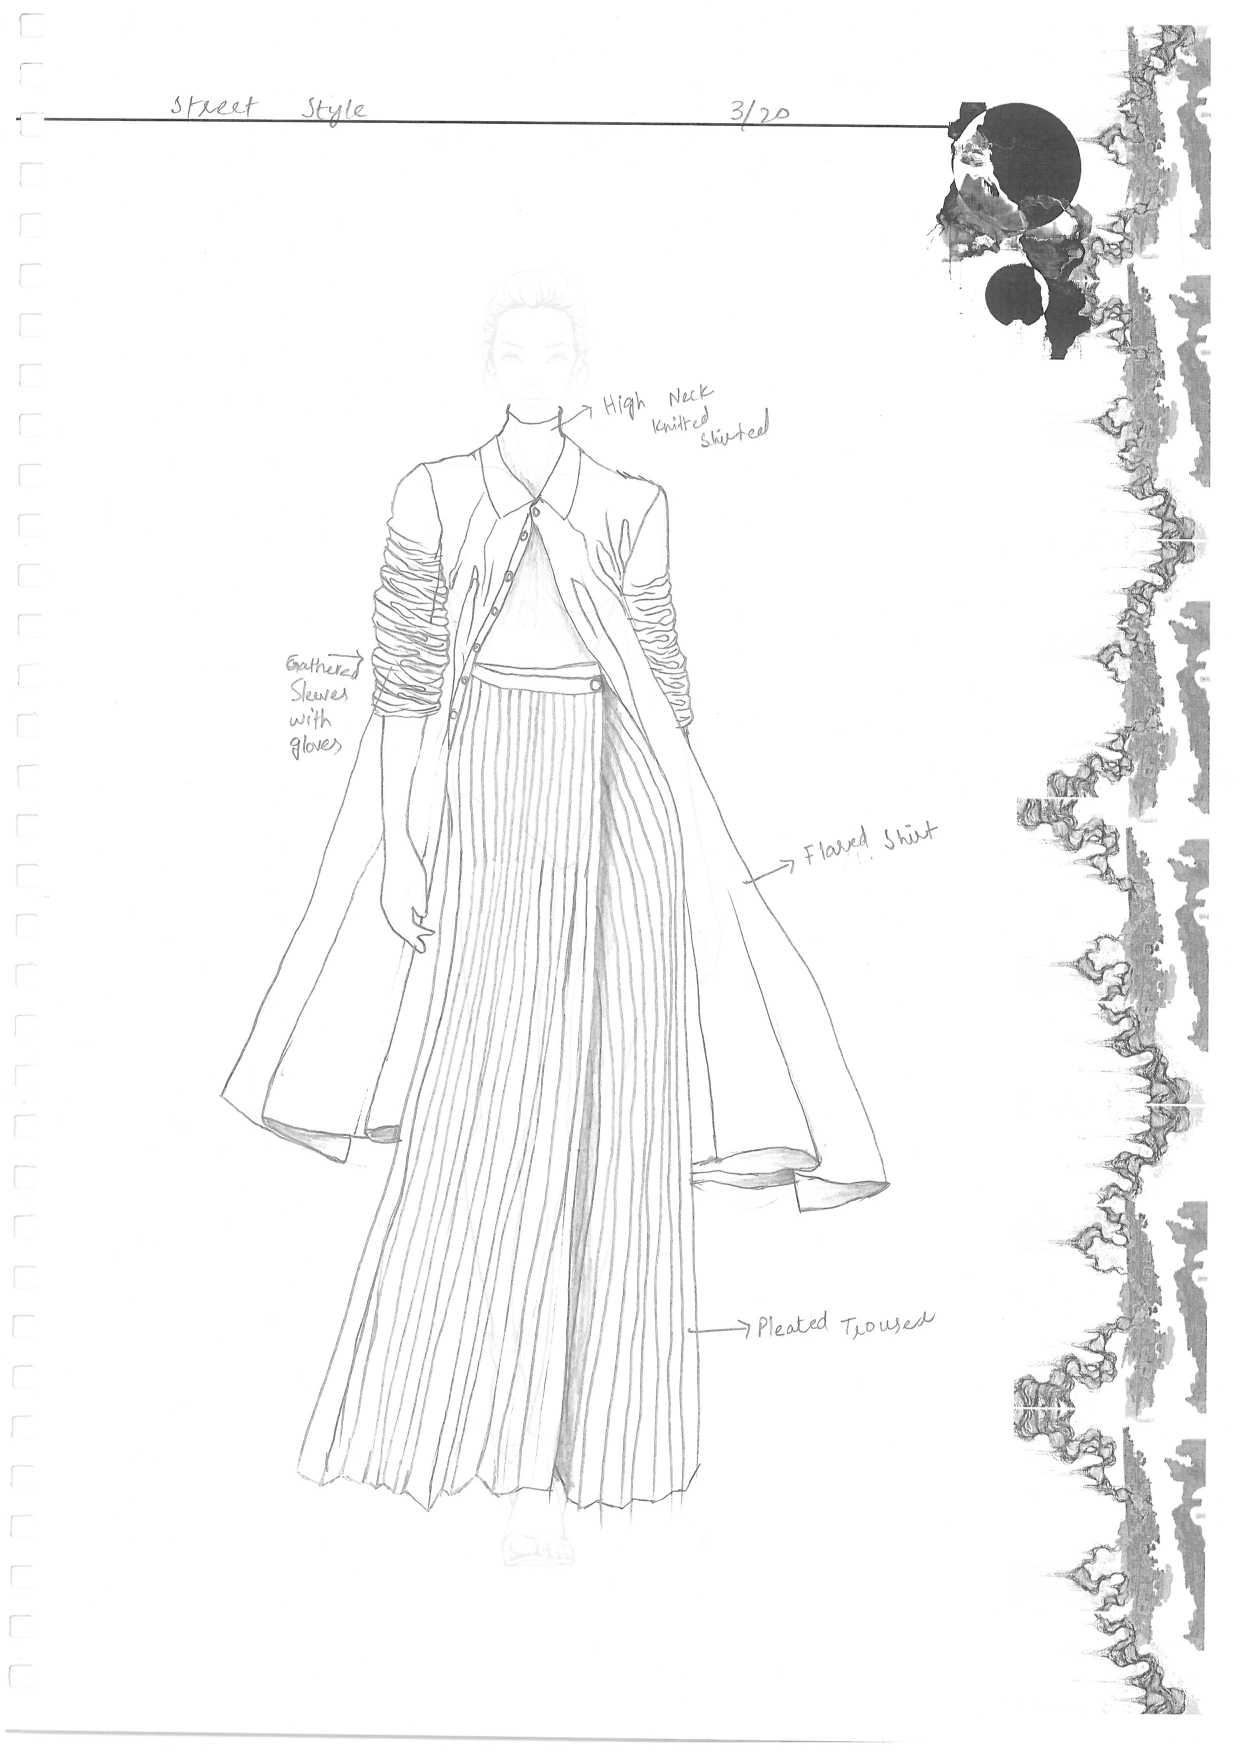 Street Style 3/20
High Neck
Knitted
Shirted
Gathered
Sleeves
with
gloves
Flared Shirt
Pleated Trouser